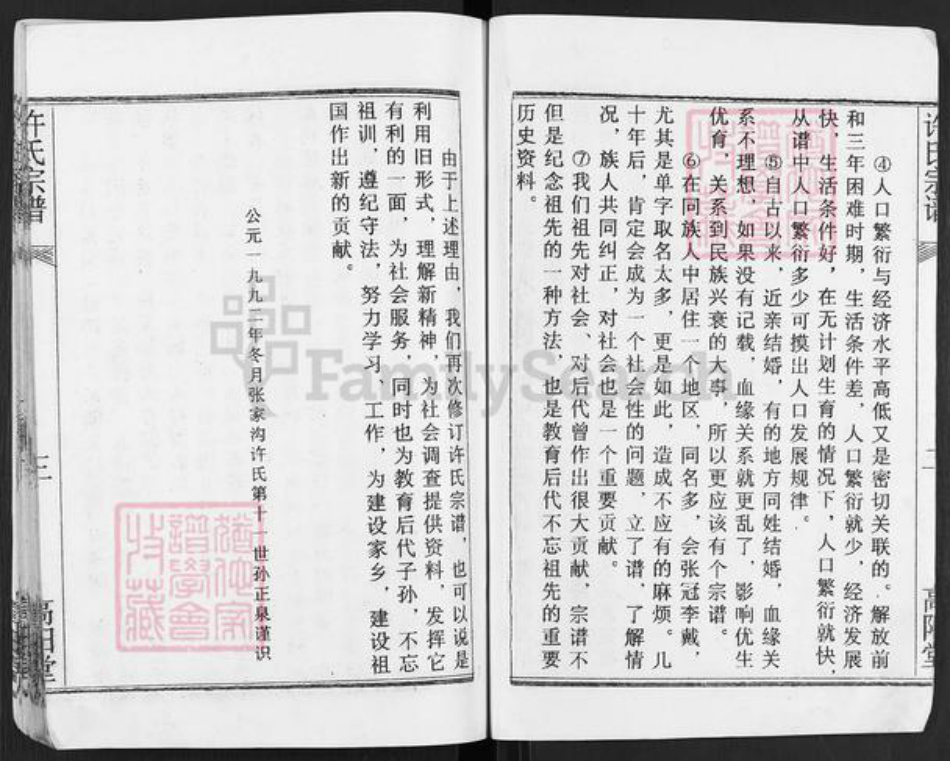 许氏宗谱
二
高阳堂
④人口繁衍与经济水平高低又是密切关联的。解放前
和三年困难时期，生活条件差，人口繁衍就少，经济发展
快，生活条件好，在无计划生育的情况下，人口繁衍就快，
从谱中人口繁衍多少可摸出人口发展规律。
⑤自古以来，近亲结婚，有的地方同姓结婚，血缘关
系不理想，如果没有记载，血缘关系就更乱了，影响优生
优育，关系到民族兴衰的大事，所以更应该有个宗谱。
⑥在同族人中居住一个地区，同名多，会张冠李戴，
尤其是单字取名太多，更是如此，造成不应有的麻烦。几
十年后，肯定会成为一个社会性的问题，立了谱，了解情
况，族人共同纠正，对社会也是一个重要贡献。
⑦我们祖先对社会、对后代曾作出很大贡献，宗谱不
但是纪念祖先的一种方法，也是教育后代不忘祖先的重要
历史资料。
由于上述理由，我们再次修订许氏宗谱，也可以说是
利用旧形式，理解新精神，为社会调查提供资料，发挥它
有利的一面，为社会服务，同时也为教育后代子孙，不忘
祖训，遵纪守法，努力学习、工作，为建设家乡，建设祖
国作出新的贡献。
公元一九九二年冬月张家沟许氏第十一世孙正泉谨识
许氏宗谱
三
高阳堂
FamilySearch
譜學會
收藏